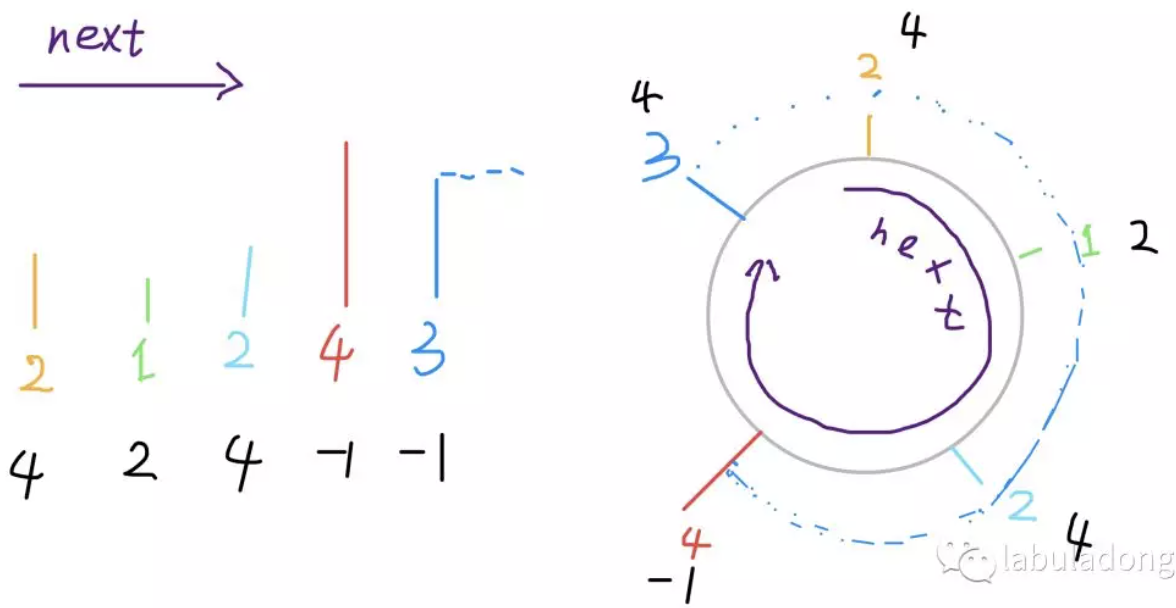 next
2 1 2 4 3
4 2 4 -1 -1
4
2
4
3
next
1 2
2
4
4
-1
labuladong